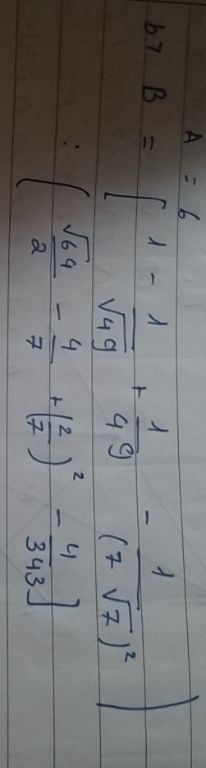 A = 6
b7 B = [ 1 - 1/√49 + 1/49 - 1/(7√7)² )
: [ √64/2 - 4/7 + (2/7)² - 4/343 ]